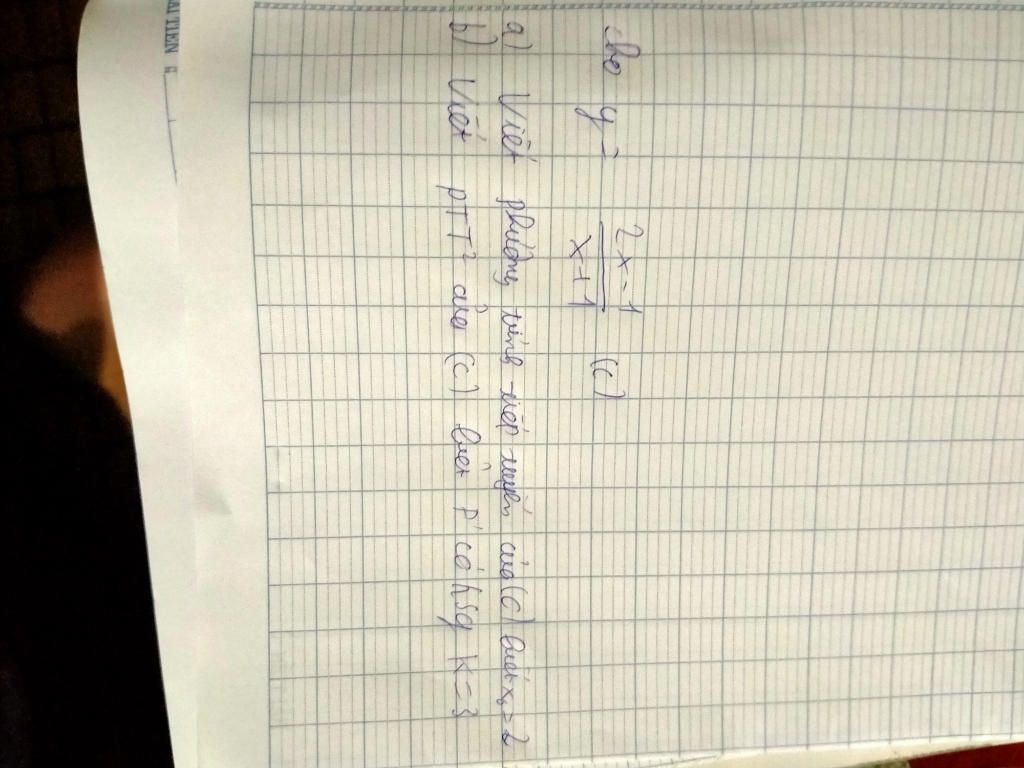 cho y = 2x-1 / x+1 (C)
a) Viết phương trình tiếp tuyến của (C) biết x₀ = 2
b) Viết pTT² của (C) biết P có hsg k = 3